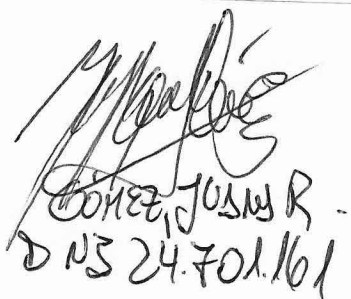 GÓMEZ, JUAN R.
DNI 24.701.161